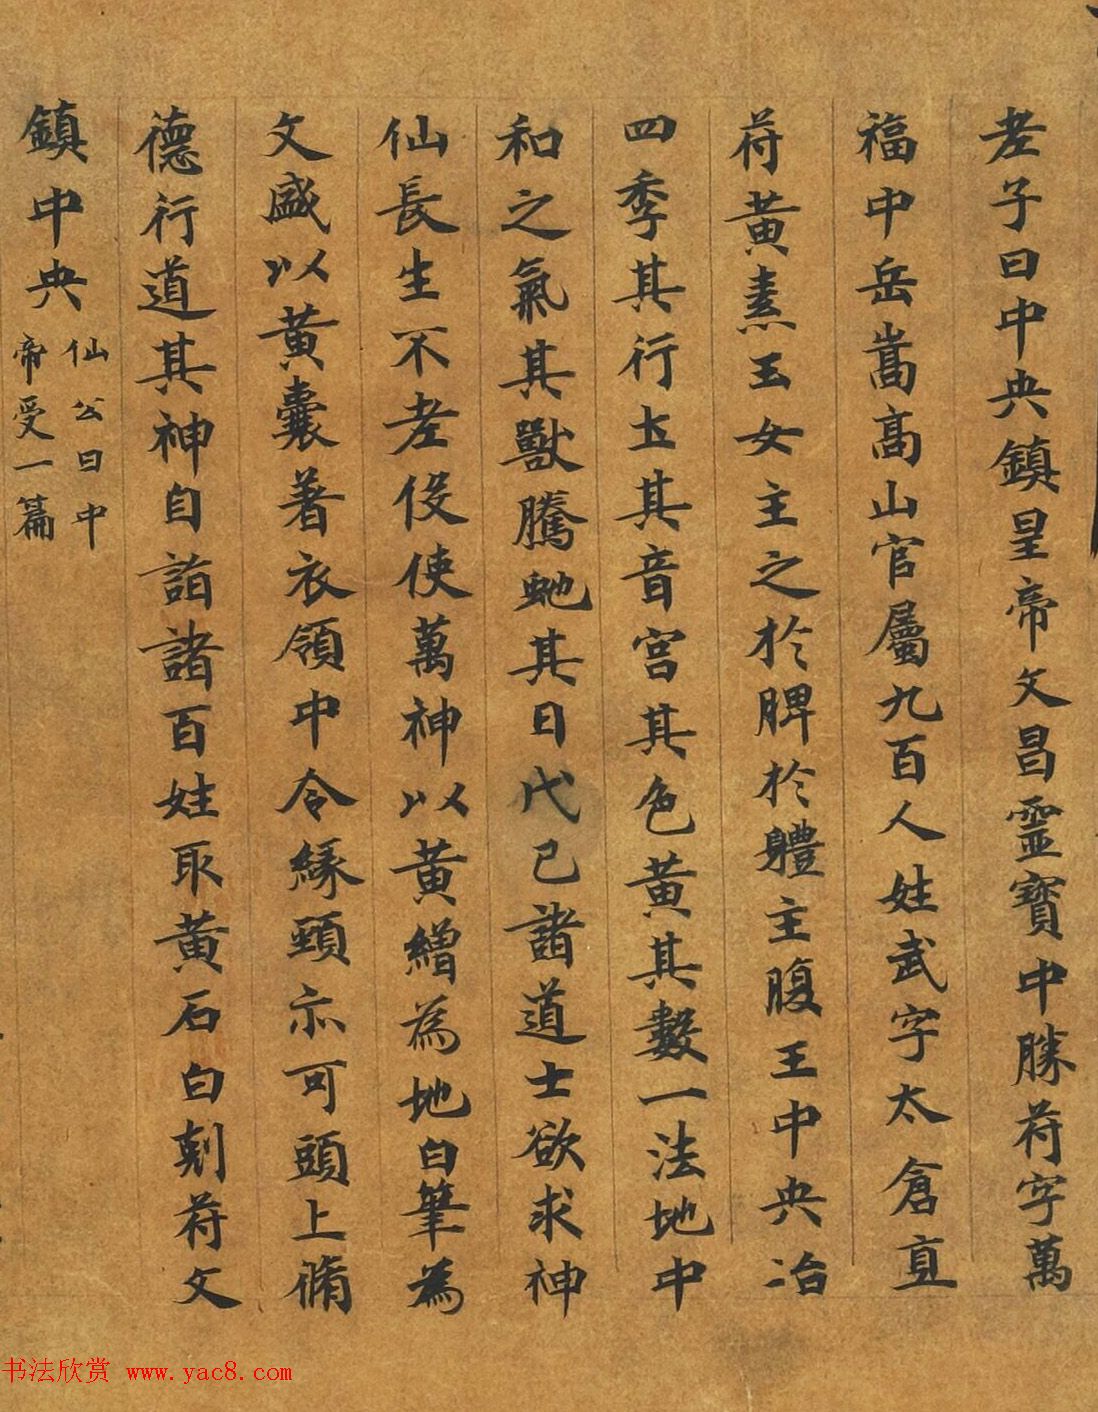 老子曰中央鎮皇帝文昌靈寳中勝苻字萬
福中岳嵩高山官屬九百人姓武字太倉直
苻黃素玉女主之於脾於軆主腹王中央治
四季其行土其音宮其色黃其數一法地中
和之氣其獸騰虵其日戊己諸道士欲求神
仙長生不老役使萬神以黃繒為地白筆為
文盛以黃囊著衣領中令緣頸亦可頭上脩
德行道其神自詣諸百姓取黃石白刻苻文
鎮中央
仙公曰中
帝受一篇
书法欣赏 www.yac8.com